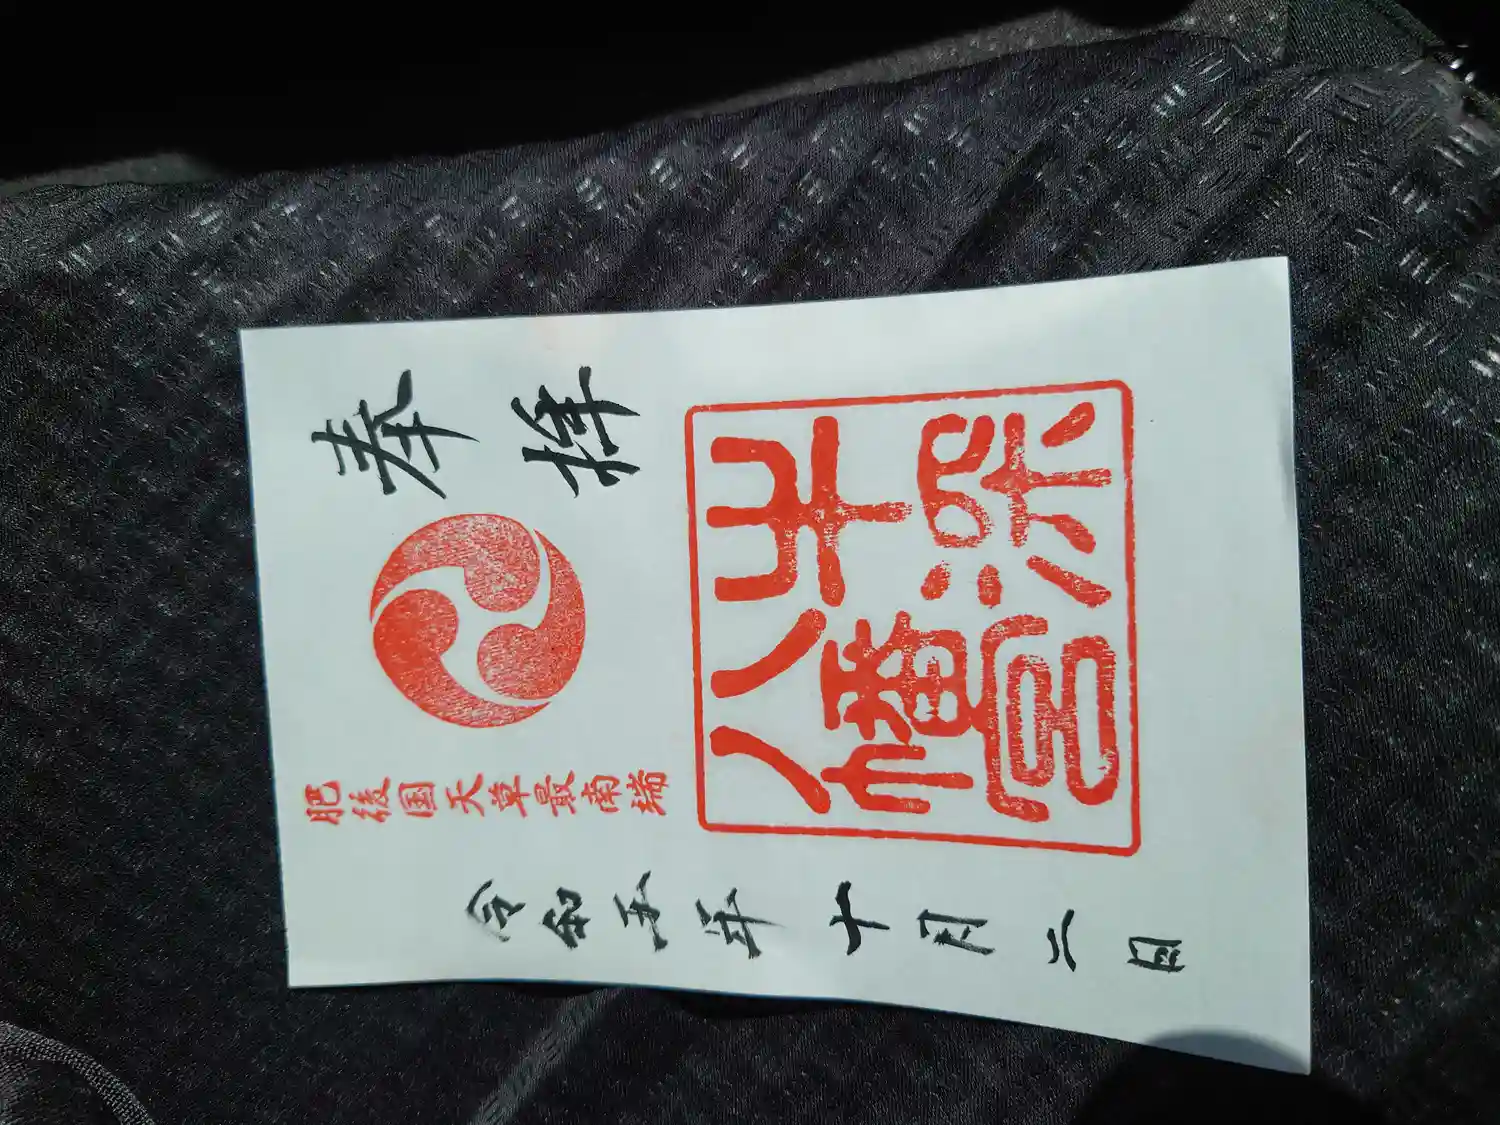 奉拝
牛深
八幡宮
肥後国天草最南端
令和五年十月二日